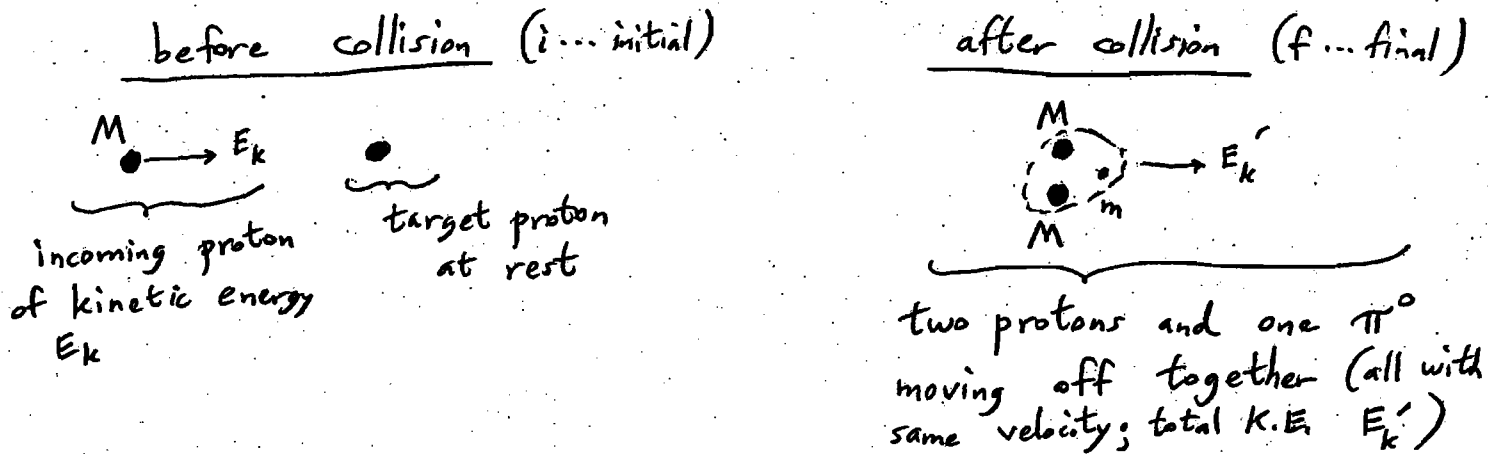 before collision (i... initial)
M
E_k
incoming proton
of kinetic energy
E_k
target proton
at rest
after collision (f... final)
M
E_k'
m
M
two protons and one π⁰
moving off together (all with
same velocity; total K.E. E_k')